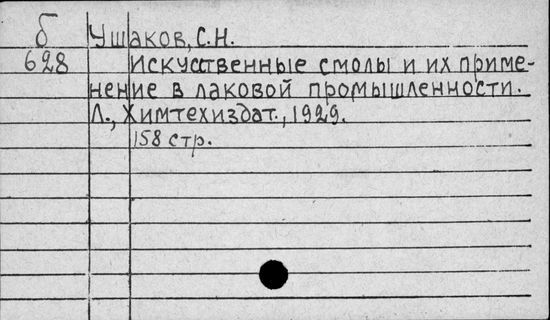 б Ушаков, С.Н.
628 Искусственные смолы и их приме-
нение в лаковой промышленности.
Л., Химтехиздат., 1929.
158 стр.